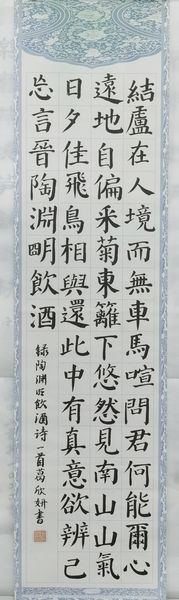 結盧在人境而無車馬喧問君何能爾心
遠地自偏采菊東籬下悠然見南山山氣
日夕佳飛鳥相與還此中有真意欲辨已
忘言晉陶淵明飲酒
録陶淵明飲酒诗一首葛欣妍書